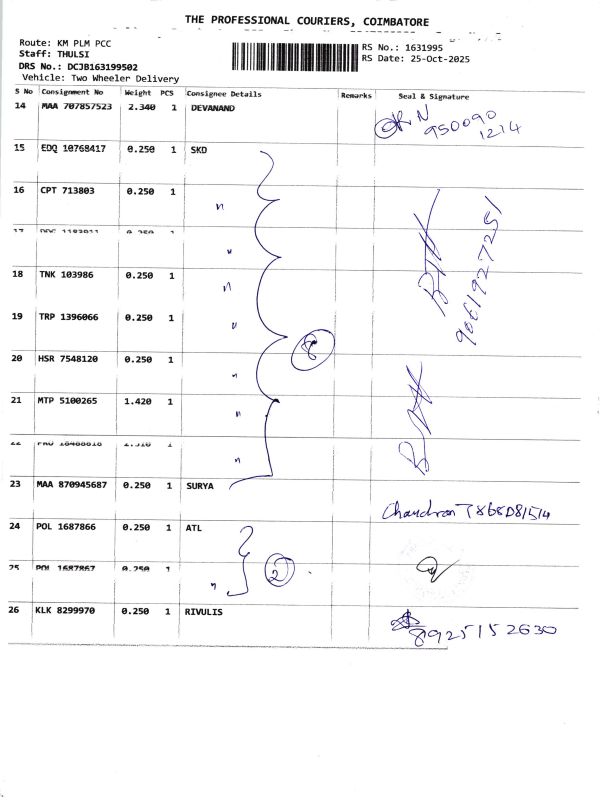 THE PROFESSIONAL COURIERS, COIMBATORE
Route: KM PLM PCC
Staff: THULSI
DRS No.: DCJB163199502
Vehicle: Two Wheeler Delivery
RS No.: 1631995
RS Date: 25-Oct-2025
S No Consignment No Weight PCS Consignee Details Remarks Seal & Signature
14 MAA 707857523 2.340 1 DEVANAND
950090
1214
15 EDQ 10768417 0.250 1 SKD
16 CPT 713803 0.250 1 "
"
18 TNK 103986 0.250 1 "
9061927251
19 TRP 1396066 0.250 1 "
8
20 HSR 7548120 0.250 1 "
21 MTP 5100265 1.420 1 "
"
23 MAA 870945687 0.250 1 SURYA
Chandran
24 POL 1687866 0.250 1 ATL
2
25 POL 1687867 0.250 1 "
26 KLK 8299970 0.250 1 RIVULIS
8925152630